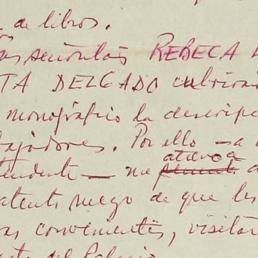 de libros.
señoritas REBECA
TA DELGADO cubrirán
monográfico la descripc
bajadores. Por ello — a
tendente — me
atrevo a
atento ruego de que les
convenientes, visitar